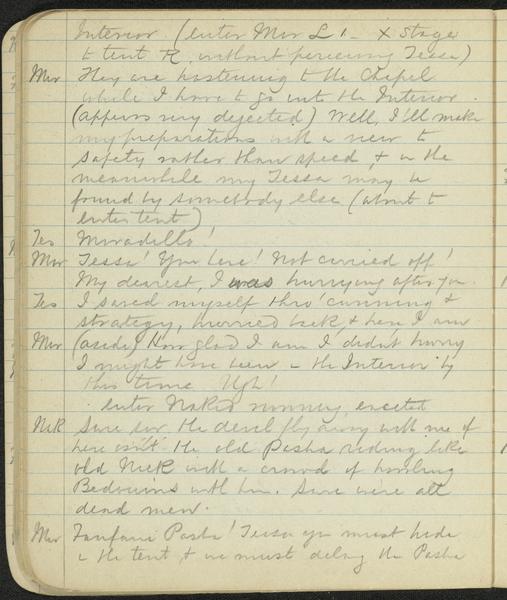 Interior (enter Mir L 1 - X Stage
to tent R. without perceiving Tessa)
Mir They are hastening to the Chapel
while I have to go into the Interior.
(appears very dejected) Well, I'll make
my preparations with a view to
safety rather than speed & in the
meanwhile my Tessa may be
found by somebody else (about to
enter tent)
Tes Miradillo!
Mir Tessa! You here! Not carried off!
My dearest, I was hurrying after you.
Tes I saved myself thro' cunning &
strategy, hurried back & here I am
Mir (aside) How glad I am I didn't hurry
I might have been in the Interior by
this time Ugh!
enter running, excited
Nek Sure lor the devil fly away with me if
here isn't the old Pasha riding like
old Nick with a crowd of howling
Bedouins with him. Sure we're all
dead men.
Mir Fanfani Pasha! Tessa you must hide
in the tent & we must delay the Pasha